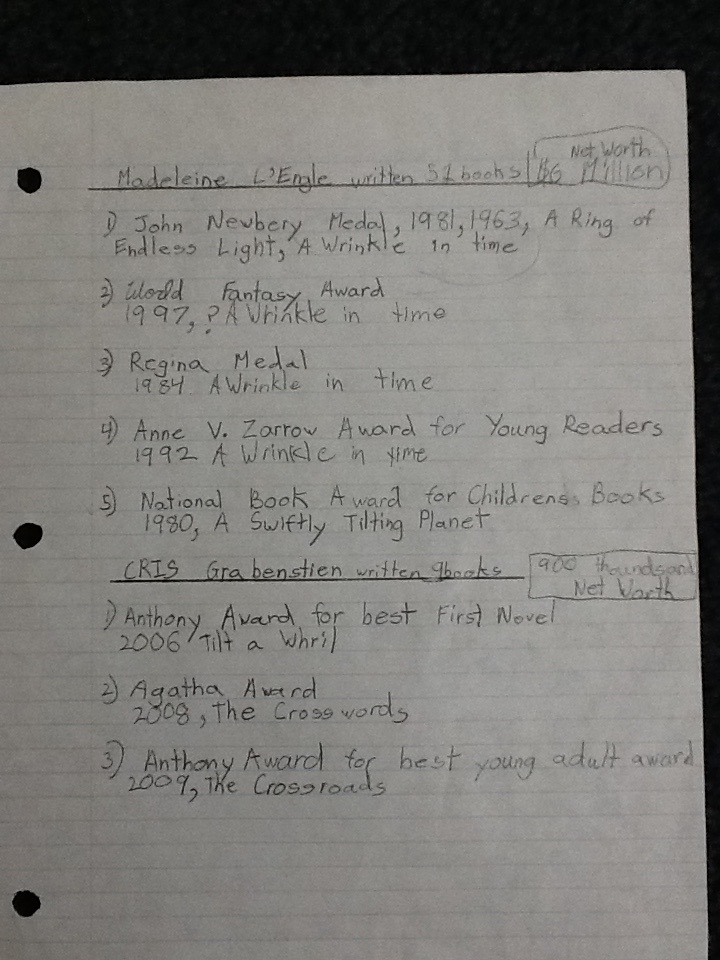 Net Worth
Madeleine L'Engle written 51 books $6 Million
1) John Newbery Medal, 1981, 1963, A Ring of
Endless Light, A Wrinkle in time
2) World Fantasy Award
1997, ? A Wrinkle in time
3) Regina Medal
1984 A Wrinkle in time
4) Anne V. Zarrow Award for Young Readers
1992 A Wrinkle in yime
5) National Book Award for Childrens Books
1980, A Swiftly Tilting Planet
CRIS Grabenstien written 9books 900 thoundsand
Net Worth
1) Anthony Award for best First Novel
2006 Tilt a Whril
2) Agatha Award
2008, The Crosswords
3) Anthony Award for best young adult award
2009, The Crossroads